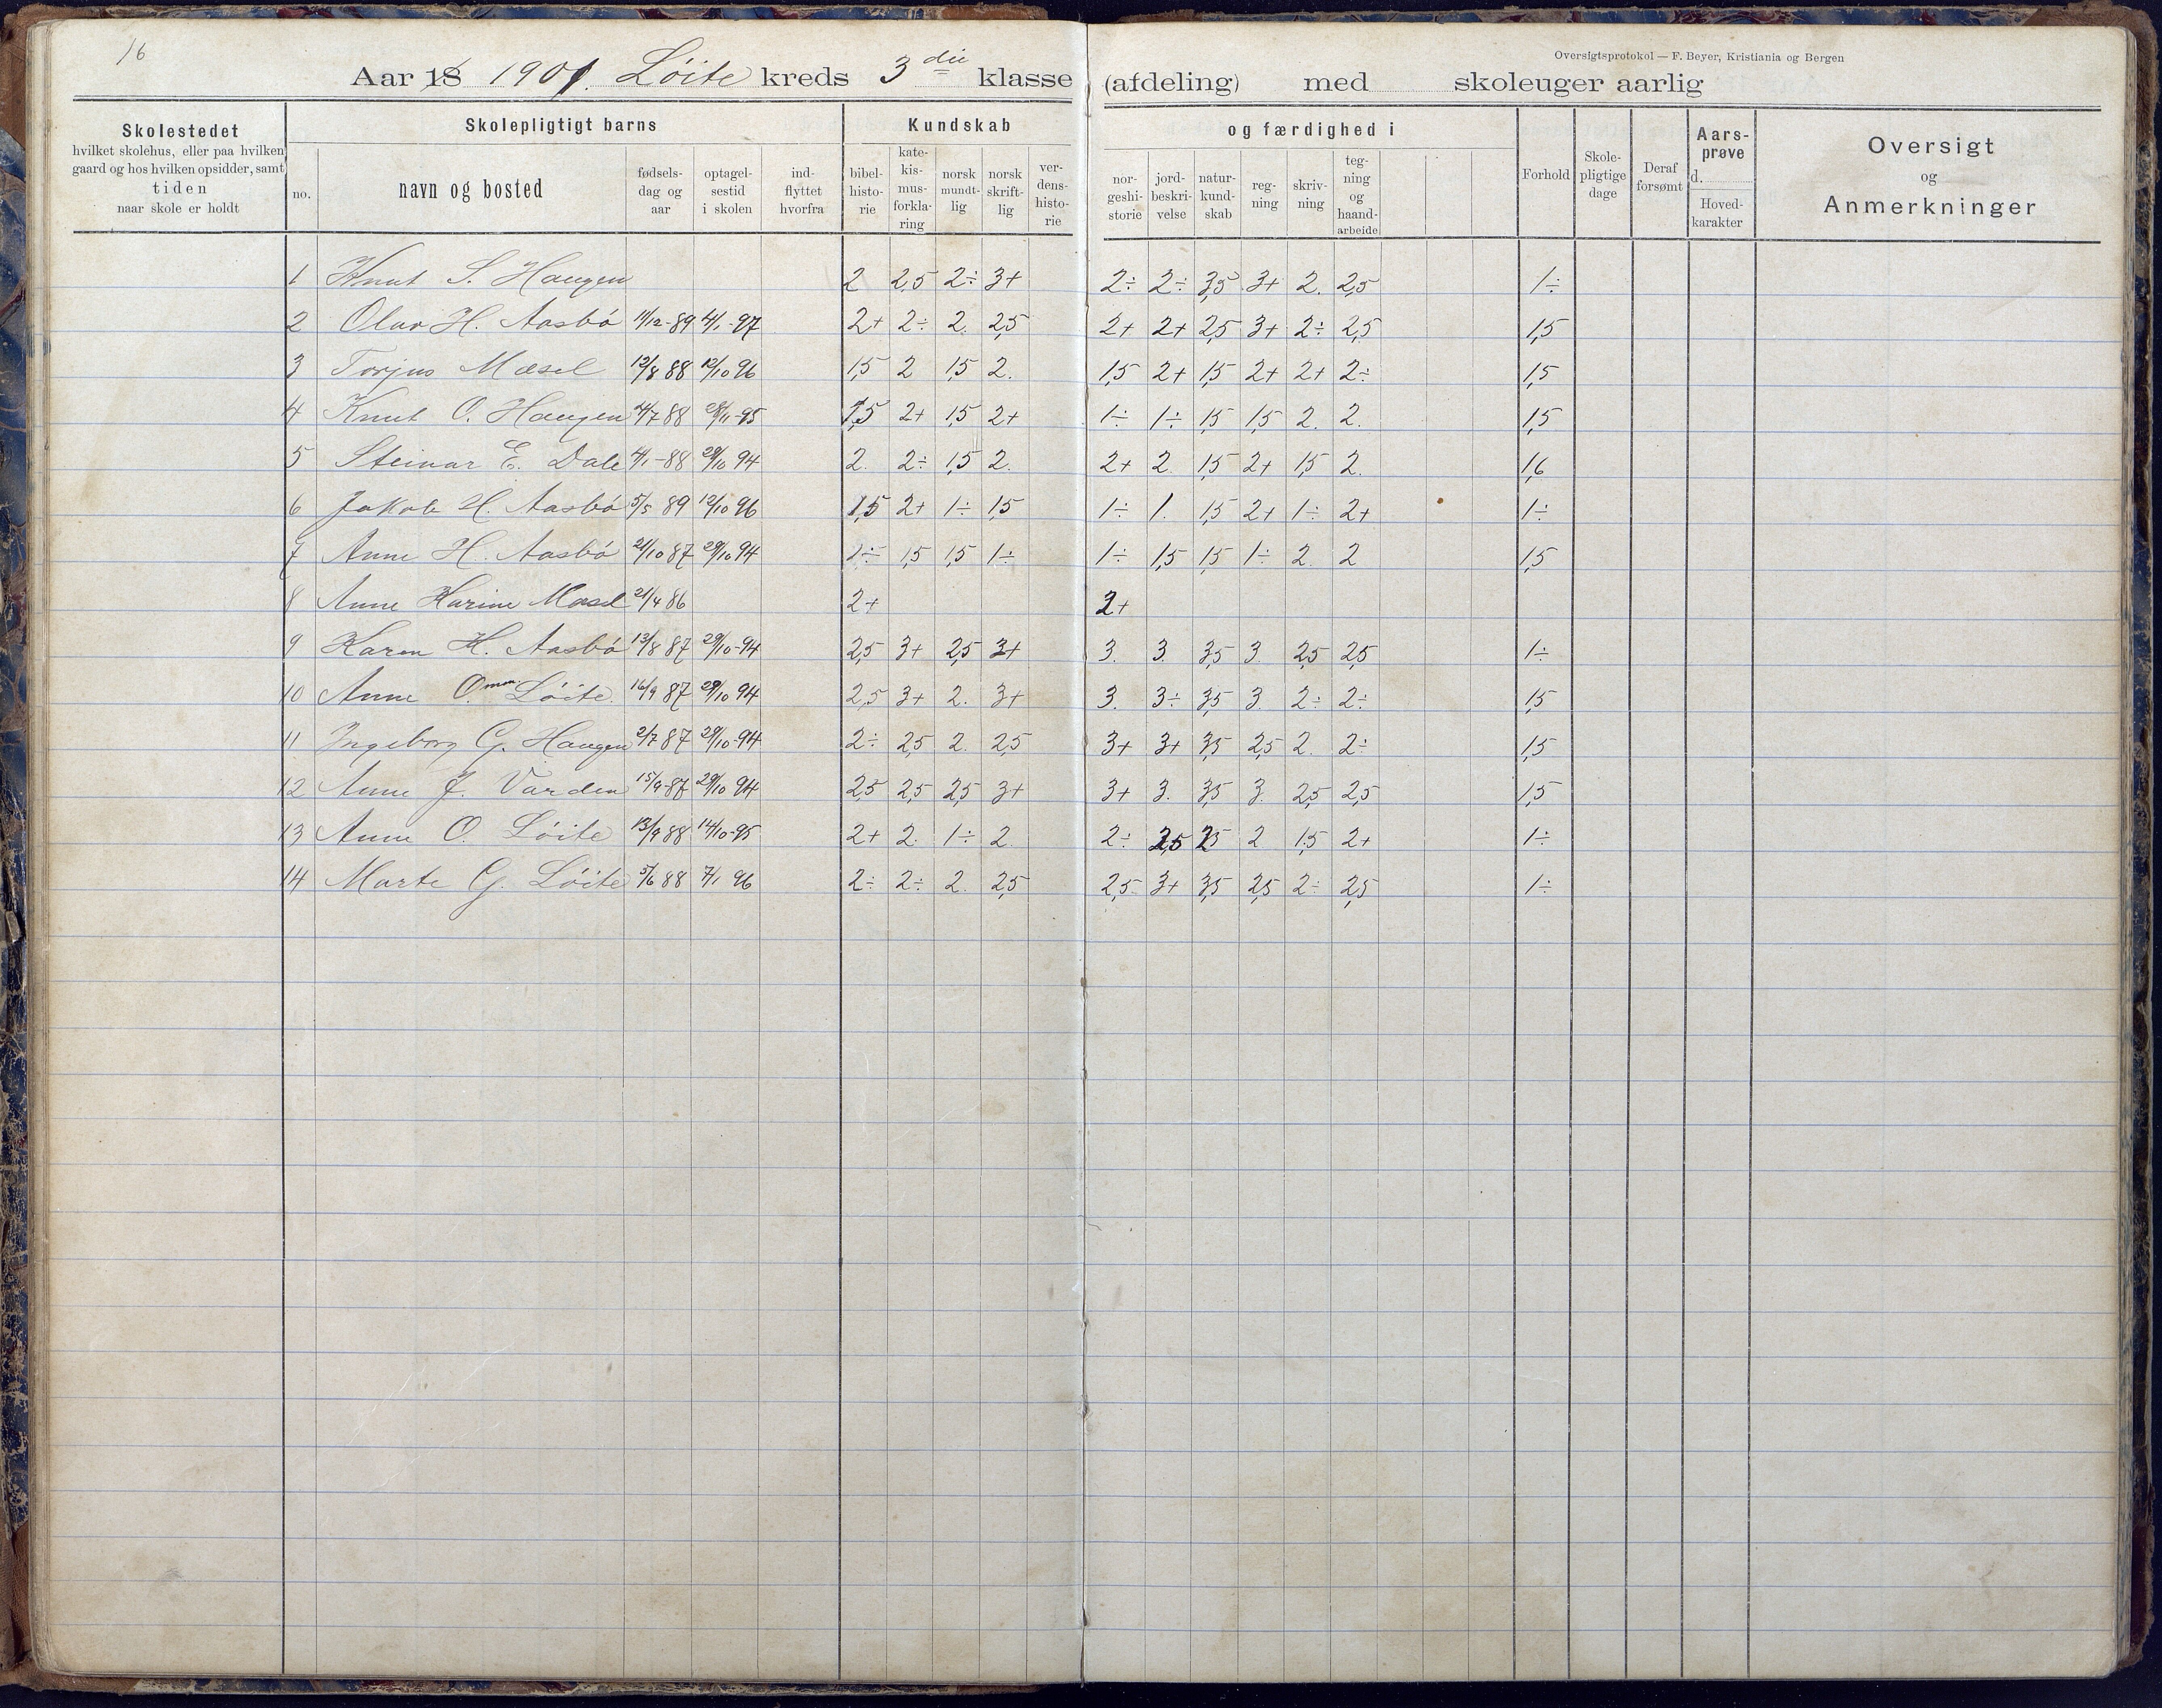 16
Oversigtsprotokol — F. Beyer, Kristiania og Bergen
Aar 18 1901. Löite kreds 3die klasse (afdeling) med skoleuger aarlig
Skolestedet
hvilket skolehus, eller paa hvilken
gaard og hos hvilken opsidder, samt
tiden
naar skole er holdt
Skolepligtigt barns
no.
navn og bosted
fødsels-
dag og
aar
optagel-
sestid
i skolen
ind-
flyttet
hvorfra
Kundskab
bibel-
histo-
rie
kate-
kis-
mus-
forkla-
ring
norsk
mundt-
lig
norsk
skrift-
lig
ver-
dens-
histo-
rie
og færdighed i
nor-
geshi-
storie
jord-
beskri-
velse
natur-
kund-
skab
reg-
ning
skriv-
ning
teg-
ning
og
haand-
arbeide
Forhold
Skole-
pligtige
dage
Deraf
forsømt
Aars-
prøve
d.
Hoved-
karakter
Oversigt
og
Anmerkninger
1 Knut S. Haugen 2 2,5 2÷ 3+ 2÷ 2÷ 3,5 3+ 2. 2,5 1÷
2 Olav H. Aasbö 11/12-89 4/1-97 2+ 2÷ 2. 2,5 2+ 2+ 2,5 3+ 2÷ 2,5 1,5
3 Torjus Mæsel 12/8 88 12/10 96 1,5 2 1,5 2. 1,5 2+ 1,5 2+ 2+ 2÷ 1,5
4 Knut O. Haugen /7 88 /11-95 1,5 2+ 1,5 2+ 1÷ 1÷ 1,5 1,5 2. 2. 1,5
5 Steinar E. Dale 4/1-88 29/10 94 2. 2÷ 1,5 2. 2+ 2. 1,5 2+ 1,5 2. 1,6
6 Jakob H. Aasbö 5/5 89 12/10 96 1,5 2+ 1÷ 1,5 1÷ 1. 1,5 2+ 1÷ 2+ 1÷
7 Anne H. Aasbö 21/10 87 29/10 94 1÷ 1,5 1,5 1÷ 1÷ 1,5 1,5 1÷ 2. 2 1,5
8 Anne Karine Mæsel 21/4 86 2+ 2+
9 Karen H. Aasbö 13/8 87 29/10-94 2,5 3+ 2,5 3+ 3. 3. 3,5 3. 2,5 2,5 1÷
10 Anne O. Löite. 16/9 87 29/10 94 2,5 3+ 2. 3+ 3. 3÷ 3,5 3. 2÷ 2÷ 1,5
11 Ingeborg G. Haugen 2/7 87 29/10-94 2÷ 2,5 2. 2,5 3+ 3+ 3,5 2,5 2. 2÷ 1,5
12 Anne J. Varden 15/9-87 29/10 94 2,5 2,5 2,5 3+ 3+ 3. 3,5 3. 2,5 2,5 1,5
13 Anne O. Löite 13/9 88 14/10-95 2+ 2. 1÷ 2. 2÷ 2,5 2,5 2 1,5 2+ 1÷
14 Marte G. Löite 5/6 88 7/1 96 2÷ 2÷ 2. 2,5 2,5 3+ 3,5 2,5 2÷ 2,5 1÷